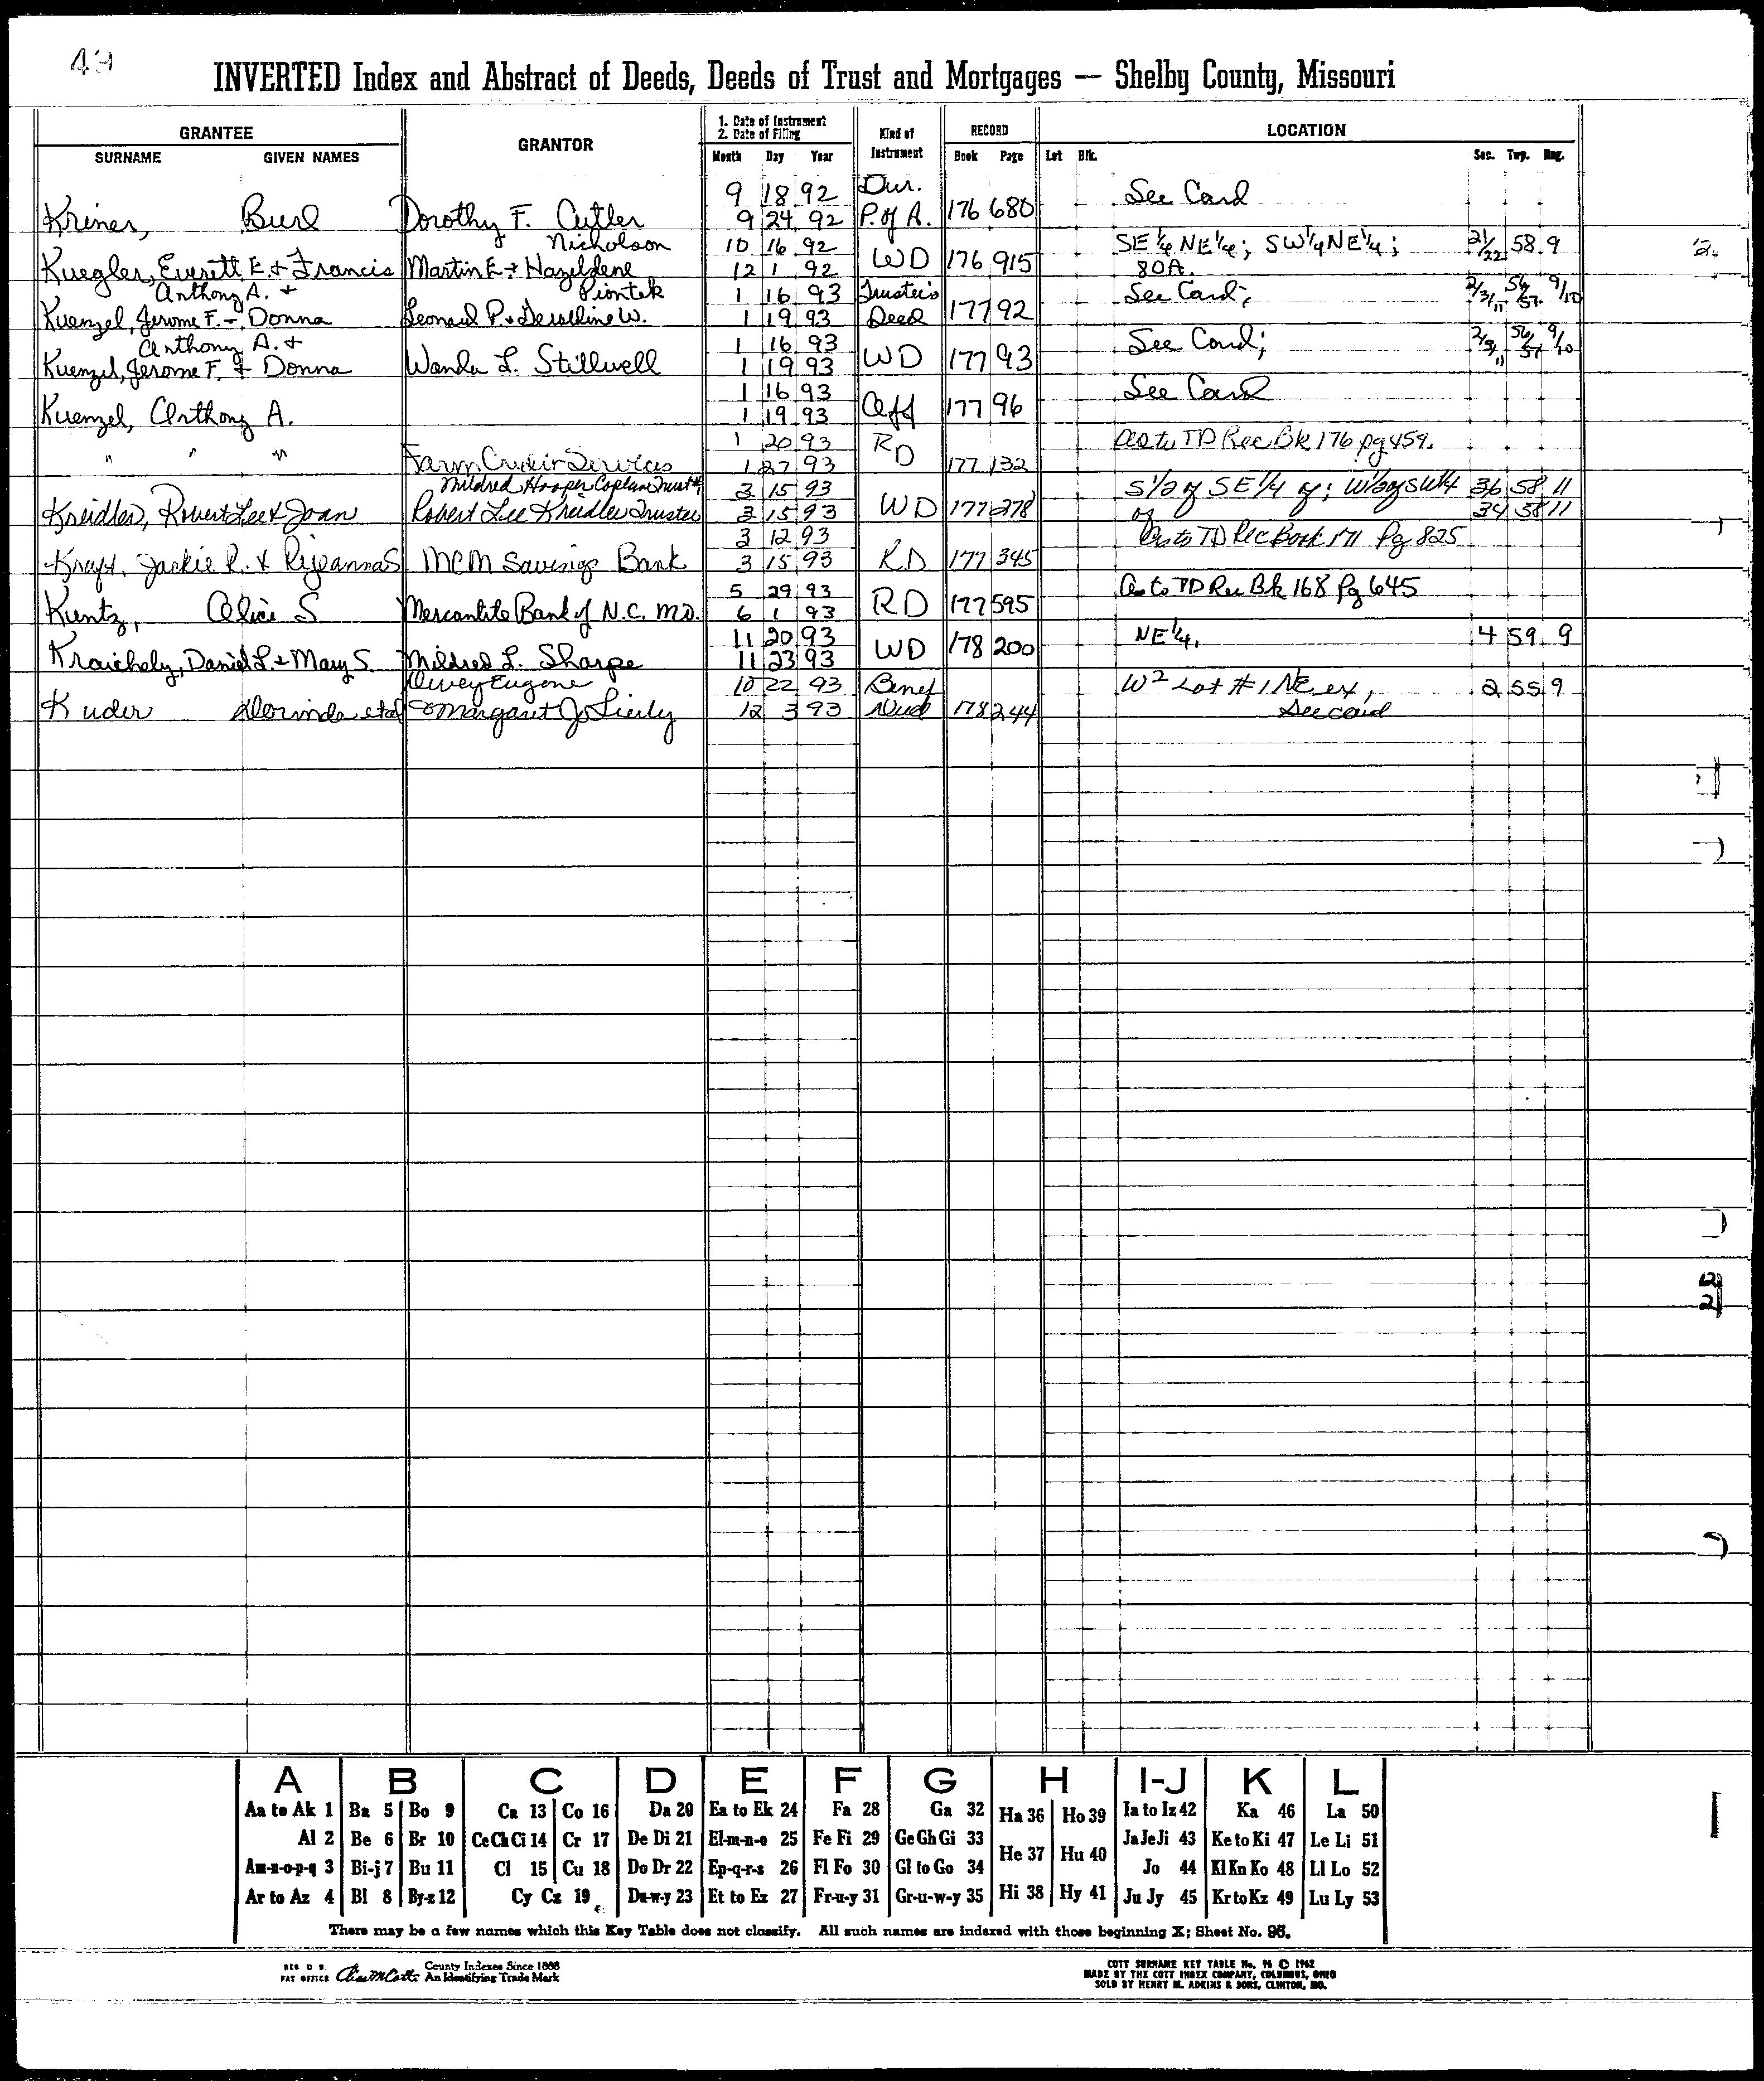 49
INVERTED Index and Abstract of Deeds, Deeds of Trust and Mortgages — Shelby County, Missouri
GRANTEE GRANTOR 1. Date of Instrument 2. Date of Filing Kind of Instrument RECORD LOCATION
SURNAME GIVEN NAMES Month Day Year Book Page Lot Blk. Sec. Twp. Rng.
9 18 92 Dur. See Card
Kriner, Burl Dorothy F. Cutler 9 24 92 P. of A. 176 680
Nicholson 10 16 92 WD 176 915 SE 1/4 NE 1/4; SW 1/4 NE 1/4; 21/22 58 9
Kuegler, Everett E. + Francis Martin E + Hazeldene 12 1 92 80A.
Anthony A. + Piontek 1 16 93 Trustee's See Card; 2/3/11 56/57 9/10
Kuenzel, Jerome F. + Donna Leonard P. + Geraldine W. 1 19 93 Deed 177 92
Anthony A. + 1 16 93 See Card; 2/3/11 56/57 9/10
Kuenzel, Jerome F. + Donna Wanda L. Stillwell 1 19 93 WD 177 93
1 16 93 See Card
Kuenzel, Anthony A. 1 19 93 Aff 177 96
1 20 93 RD As to TD Rec Bk 176 pg 459.
" " " Farm Credit Services 1 27 93 177 132
Mildred Hooper Coplan Trust 3 15 93 S 1/2 of SE 1/4 of; W 1/2 of SW 1/4 36 58 11
Kreidler, Robert Lee + Joan Robert Lee Kreidler Trustee 3 15 93 WD 177 278 of 34 58 11
3 12 93 As to TD Rec Book 171 Pg 825
Kraft, Jackie R. + Rijeanna S MCM Savings Bank 3 15 93 RD 177 345
5 29 93 As to TD Rec Bk 168 Pg 645
Kuntz, Alice S. Mercantile Bank of N.C. Mo. 6 1 93 RD 177 595
11 20 93 NE 1/4. 4 59 9
Kraichely, Daniel L. + Mary S. Mildred L. Sharpe 11 23 93 WD 178 200
Dewey Eugene 10 22 93 Benef W2 Lot #1 NE ex, 2 55 9
Kuder Dorinda etal + Margaret Jo 12 3 93 Deed 178 244 See card
A B C D E F G H I-J K L
Aa to Ak 1 Ba 5 Bo 9 Ca 13 Co 16 Da 20 Ea to Ek 24 Fa 28 Ga 32 Ha 36 Ho 39 Ia to Iz 42 Ka 46 La 50
Al 2 Be 6 Br 10 Ce Ch Ci 14 Cr 17 De Di 21 El-m-n-o 25 Fe Fi 29 Ge Gh Gi 33 He 37 Hu 40 Ja Je Ji 43 Ke to Ki 47 Le Li 51
Am-n-o-p-q 3 Bi-j 7 Bu 11 Cl 15 Cu 18 Do Dr 22 Ep-q-r-s 26 Fl Fo 30 Gl to Go 34 Jo 44 Kl Kn Ko 48 Ll Lo 52
Ar to Az 4 Bl 8 By-z 12 Cy Cz 19 Du-w-y 23 Et to Ez 27 Fr-u-y 31 Gr-u-w-y 35 Hi 38 Hy 41 Ju Jy 45 Kr to Kz 49 Lu Ly 53
There may be a few names which this Key Table does not classify. All such names are indexed with those beginning X; Sheet No. 95.
REG U S PAT OFFICE County Indexes Since 1888 An Identifying Trade Mark
COTT SURNAME KEY TABLE No. 96 © 1962
MADE BY THE COTT INDEX COMPANY, COLUMBUS, OHIO
SOLD BY HENRY M. ADKINS & SONS, CLINTON, MO.